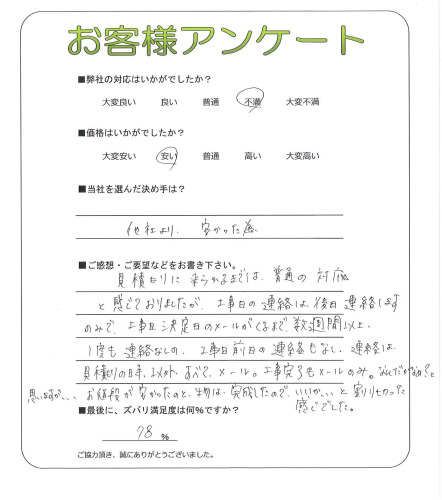 お客様アンケート
■弊社の対応はいかがでしたか？
大変良い 良い 普通 不満 大変不満
■価格はいかがでしたか？
大変安い 安い 普通 高い 大変高い
■当社を選んだ決め手は？
他社より、安かった為
■ご感想・ご要望などをお書き下さい。
見積もりに来られるまでは、普通の対応
と感じておりましたが、工事日の連絡は、後日連絡します
のみで、工事日決定日のメールがくるまで、数週間以上、
1度も連絡なしの、工事日前日の連絡もない。連絡は、
見積りの日時以外、すべて、メール。工事完了もメールのみ。なんだかなぁ？と
思いますが、、、お値段が安かったのと、物は、完成したので、いいかぁ、と割りきった
感じでした。
■最後に、ズバリ満足度は何％ですか？
78 %
ご協力頂き、誠にありがとうございました。